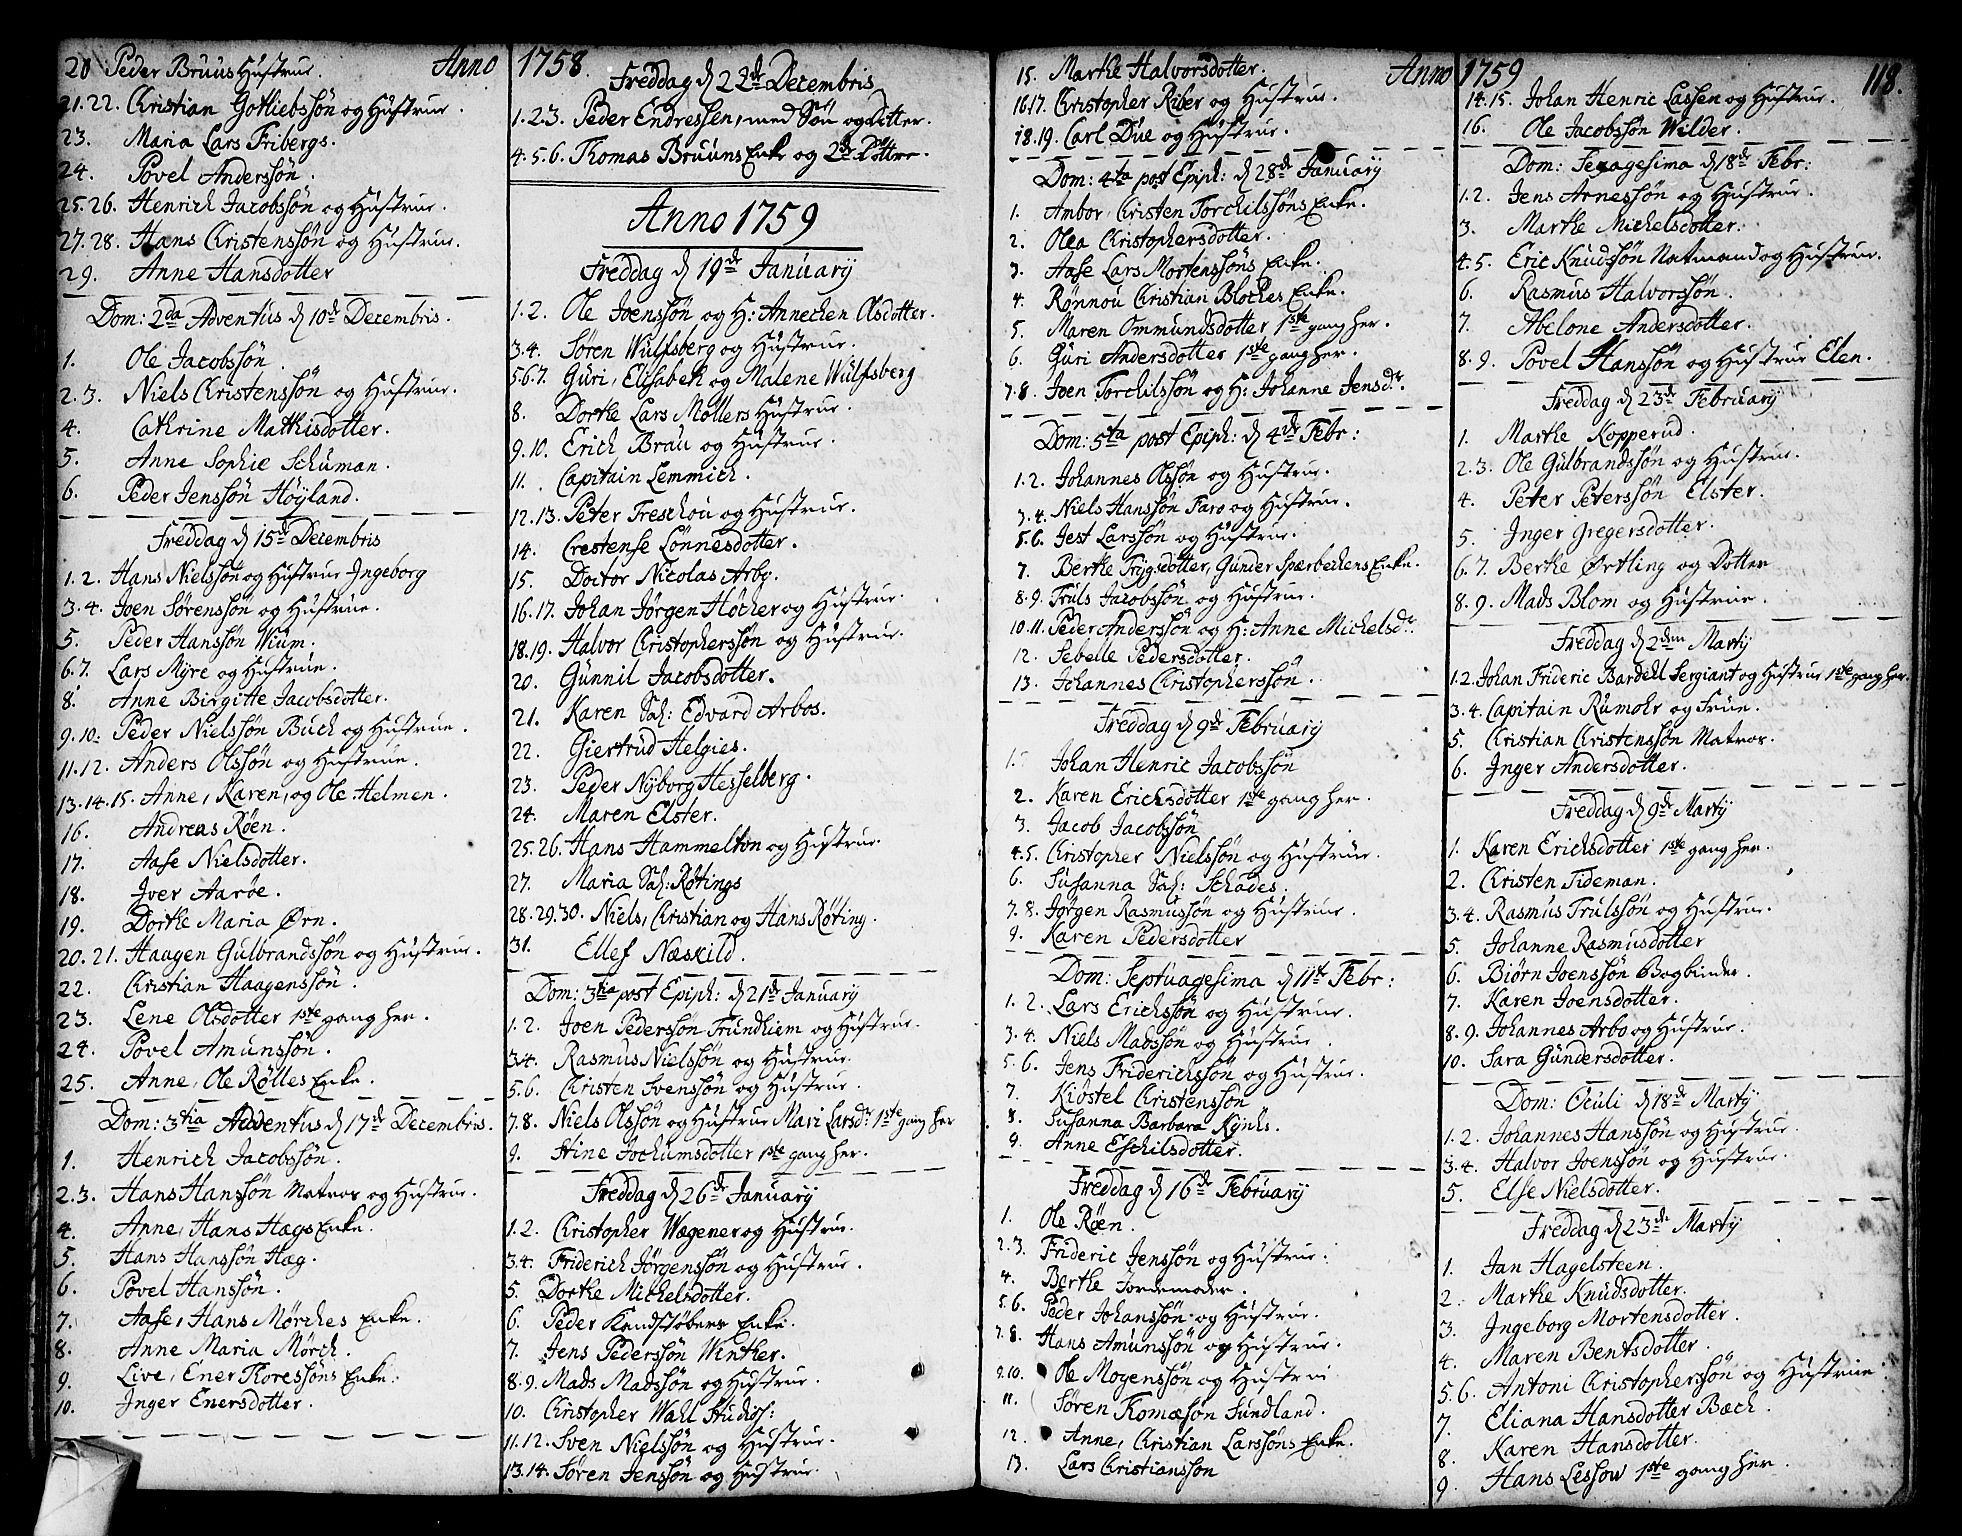 Anno 1758
20 Peder Bruus Hustrue.
21.22. Christian Gotliebssøn og Hustrue.
23. Maria Lars Fribergs.
24. Povel Anderssøn.
25.26. Henrich Jacobssøn og Hustrue.
27.28. Hans Christenssøn og Hustrue.
29. Anne Hansdotter
Dom: 2da Adventus d 10de Decembris.
1. Ole Jacobssøn.
2.3. Niels Christenssøn og Hustrue.
4. Cathrine Mathisdotter.
5. Anne Sophie Schuman.
6. Peder Jenssøn Höyland.
Freddag d 15de Decembris
1.2. Hans Nielssøn og Hustrue Ingeborg
3.4. Joen Sørenssøn og Hustrue.
5. Peder Hanssøn Wium.
6.7. Lars Myre og Hustrue.
8. Anne Birgitte Jacobsdotter.
9.10: Peder Nielssøn Buch og Hustrue.
11.12. Anders Olssøn og Hustrue.
13.14.15. Anne, Karen, og Ole Helmen.
16. Andreas Röen.
17. Aase Nielsdotter.
18. Iver Aaröe.
19. Dorthe Maria Ørn.
20.21. Haagen Gulbrandssøn og Hustrue.
22. Christian Haagenssøn.
23. Lene Olsdotter 1ste gang her.
24. Povel Amunssøn.
25. Anne, Ole Rølles Enke.
Dom: 3tia Adventus d 17de Decembris.
1. Henrich Jacobssøn.
2.3. Hans Hanssøn Matros og Hustrue.
4. Anne, Hans Hægs Enke.
5. Hans Hanssøn Hæg.
6. Povel Hanssøn.
7. Aase, Hans Mörches Enke.
8. Anne Maria Mörch.
9. Live, Ener Thoressøns Enke.
10. Inger Enersdotter.
Freddag d 22de Decembris
1.2.3. Peder Endressen, med Søn og Dotter.
4.5.6. Thomas Bruuns Enke og 2de Døttre.
Anno 1759
Freddag d 19de January
1.2. Ole Joenssøn og H: Annechen Olsdotter.
3.4. Sören Wulfsberg og Hustrue.
5.6.7. Guri, Elisabeth og Malene Wulfsberg
8. Dorthe Lars Mollers Hustrue.
9.10. Erich Brau og Hustrue.
11. Capitain Lemmich.
12.13. Peter Treschou og Hustrue.
14. Crestense Lonnesdotter.
15. Doctor Nicolas Arbo.
16.17. Johan Jörgen Höcher og Hustrue.
18.19. Halvor Christopherssøn og Hustrue.
20. Gunnil Jacobsdotter.
21. Karen Sal: Edvard Arbos.
22. Giertrud Helgies.
23. Peder Nyborg Hesselberg.
24. Maren Elster.
25.26. Hans Hammelton og Hustrue.
27. Maria Sal: Rötings
28.29.30. Niels, Christian og Hans Röting.
31. Ellef Næskild.
Dom: 3tia post Epiph: d 21de January
1.2. Joen Pederssøn Trundhiem og Hustrue.
3.4. Rasmus Nielssøn og Hustrue.
5.6. Christen Svenssøn og Hustrue.
7.8. Niels Olssøn og Hustrue Mari Larsdr. 1ste gang her
9. Stine Jochumsdotter 1ste gang her.
Freddag d 26de January
1.2. Christopher Wægener og Hustrue.
3.4. Friderich Jörgenssøn og Hustrue.
5. Dorthe Michelsdotter.
6. Peder Kandstöbers Enke.
7. Jens Pederssøn Winther.
8.9. Mads Madssøn og Hustrue.
10. Christopher Wahl Studios:
11.12. Sven Nielssøn og Hustrue.
13.14. Søren Jenssøn og Hustrue.
Anno 1759
118.
15. Marthe Halvorsdotter.
16.17. Christopher Riber og Hustrue.
18.19. Carl Due og Hustrue.
Dom: 4ta post Epiph: d 28de January
1. Ambor, Christen Torchilssøns Enke.
2. Olea Christophersdotter.
3. Aase Lars Mortenssøns Enke.
4. Rønnou Christian Bloches Enke.
5. Maren Ommundsdotter 1ste gang her.
6. Guri Andersdotter 1ste gang her.
7.8. Joen Torchilssøn og H: Johanne Jensdr.
Dom: 5ta post Epiph: d 4de Febr:
1.2. Johannes Olssøn og Hustrue.
3.4. Niels Hanssøn Faro og Hustrue.
5.6. Jest Larssøn og Hustrue.
7. Berthe Trygsdotter, Gunder Spærbechens Enke.
8.9. Truls Jacobssøn og Hustrue.
10.11. Peder Anderssøn og H: Anne Michelsdr.
12. Sebelle Pedersdotter.
13. Johannes Christopherssøn.
Freddag d 9de February
1. Johan Henric Jacobssøn
2. Karen Erichsdotter 1ste gang her.
3. Jacob Jacobssøn
4.5. Christopher Nielssøn og Hustrue.
6. Susanna Sal: Schades.
7.8. Jörgen Rasmussøn og Hustrue.
9. Karen Pedersdotter
Dom: Septuagesima d 11te Febr:
1.2. Lars Erichssøn og Hustrue.
3.4. Niels Madssøn og Hustrue.
5.6. Jens Friderichssøn og Hustrue.
7. Kiöstel Christenssøn
8. Susanna Barbara Kynhs.
9. Anne Eschilsdotter.
Freddag d 16de February
1. Ole Röen.
2.3. Frideric Jenssøn og Hustrue.
4. Berthe Jordemoder.
5.6. Peder Johanssøn og Hustrue.
7.8. Hans Amunssøn og Hustrue.
9.10. Ole Mogenssøn og Hustrue
11. Sören Thomæsøn Sundland.
12. Anne, Christian Larssøns Enke.
13. Lars Christianssøn
14.15. Johan Henric Lassen og Hustrue.
16. Ole Jacobssøn Wilder.
Dom: Sexagesima d 18de Febr:
1.2. Jens Arnessøn og Hustrue.
3. Marthe Michelsdotter.
4.5. Eric Knudssøn Natmand og Hustrue.
6. Rasmus Halvorssøn.
7. Abelone Andersdotter.
8.9. Povel Hanssøn og Hustrue Elen.
Freddag d 23de February
1. Marthe Kopperud.
2.3. Ole Gulbrandssøn og Hustrue.
4. Peter Peterssøn Elster.
5. Inger Gregersdotter.
6.7. Berthe Ørtling og Dotter
8.9. Mads Blom og Hustrue.
Freddag d 2den Marty
1.2. Johan Frideric Bardell Sergiant og Hustrue 1ste gang her.
3.4. Capitain Rumohr og Frue.
5. Christian Christenssøn Matros.
6. Inger Andersdotter.
Freddag d 9de Marty
1. Karen Erichsdotter 1ste gang her.
2. Christen Tideman.
3.4. Rasmus Trulssøn og Hustrue.
5. Johanne Rasmusdotter
6. Biörn Joenssøn Bogbinder.
7. Karen Joensdotter.
8.9. Johannes Arbo og Hustrue.
10. Sara Gundersdotter.
Dom: Oculi d 18de Marty
1.2. Johannes Hanssøn og Hustrue.
3.4. Halvor Joenssøn og Hustrue.
5. Else Nielsdotter.
Freddag d 23de Marty
1. Jan Hagelsteen.
2. Marthe Knudsdotter.
3. Ingeborg Mortensdotter.
4. Maren Bentsdotter.
5.6. Antoni Christopherssøn og Hustrue.
7. Eliana Hansdotter Bæch.
8. Karen Hansdotter.
9. Hans Lessow 1ste gang her.